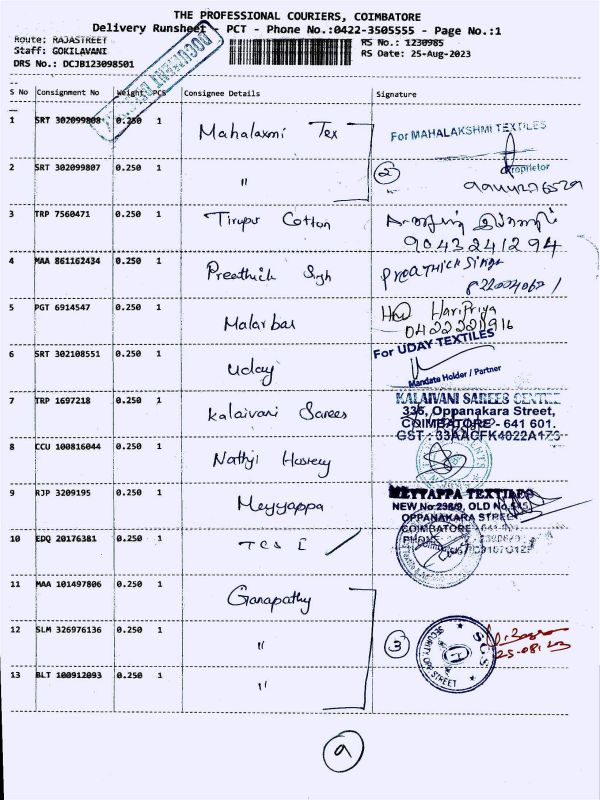 THE PROFESSIONAL COURIERS, COIMBATORE
Delivery Runsheet - PCT - Phone No.:0422-3505555 - Page No.:1
Route: RAJASTREET
RS No.: 1230985
Staff: GOKILAVANI
RS Date: 25-Aug-2023
DRS No.: DCJB123098501
DOCUMENT
S No Consignment No Weight PCS Consignee Details Signature
1 SRT 302099808 0.250 1 Mahalaxmi Tex
For MAHALAKSHMI TEXTILES
Proprietor
2 SRT 302099807 0.250 1 "
2
3 TRP 7560471 0.250 1 Tirupur Cotton
9043241294
4 MAA 861162434 0.250 1 Preathick Sigh
PREATHICK SINGH
5 PGT 6914547 0.250 1 Malarbar
HariPriya
6 SRT 302108551 0.250 1 Uday
For UDAY TEXTILES
Mandate Holder / Partner
7 TRP 1697218 0.250 1 Kalaivani Sarees
KALAIVANI SAREES CENTRE
335, Oppanakara Street,
COIMBATORE - 641 601.
8 CCU 100816044 0.250 1 Nathji Hosiery
9 RJP 3209195 0.250 1 Meyyappa
MEYYAPPA TEXTILES
OPPANAKARA STREET
COIMBATORE
10 EDQ 20176381 0.250 1 TCS I
11 MAA 101497806 0.250 1 Ganapathy
12 SLM 326976136 0.250 1 "
3
S.G.S
SECURITY
STREET
25-08-23
13 BLT 100912093 0.250 1 "
9